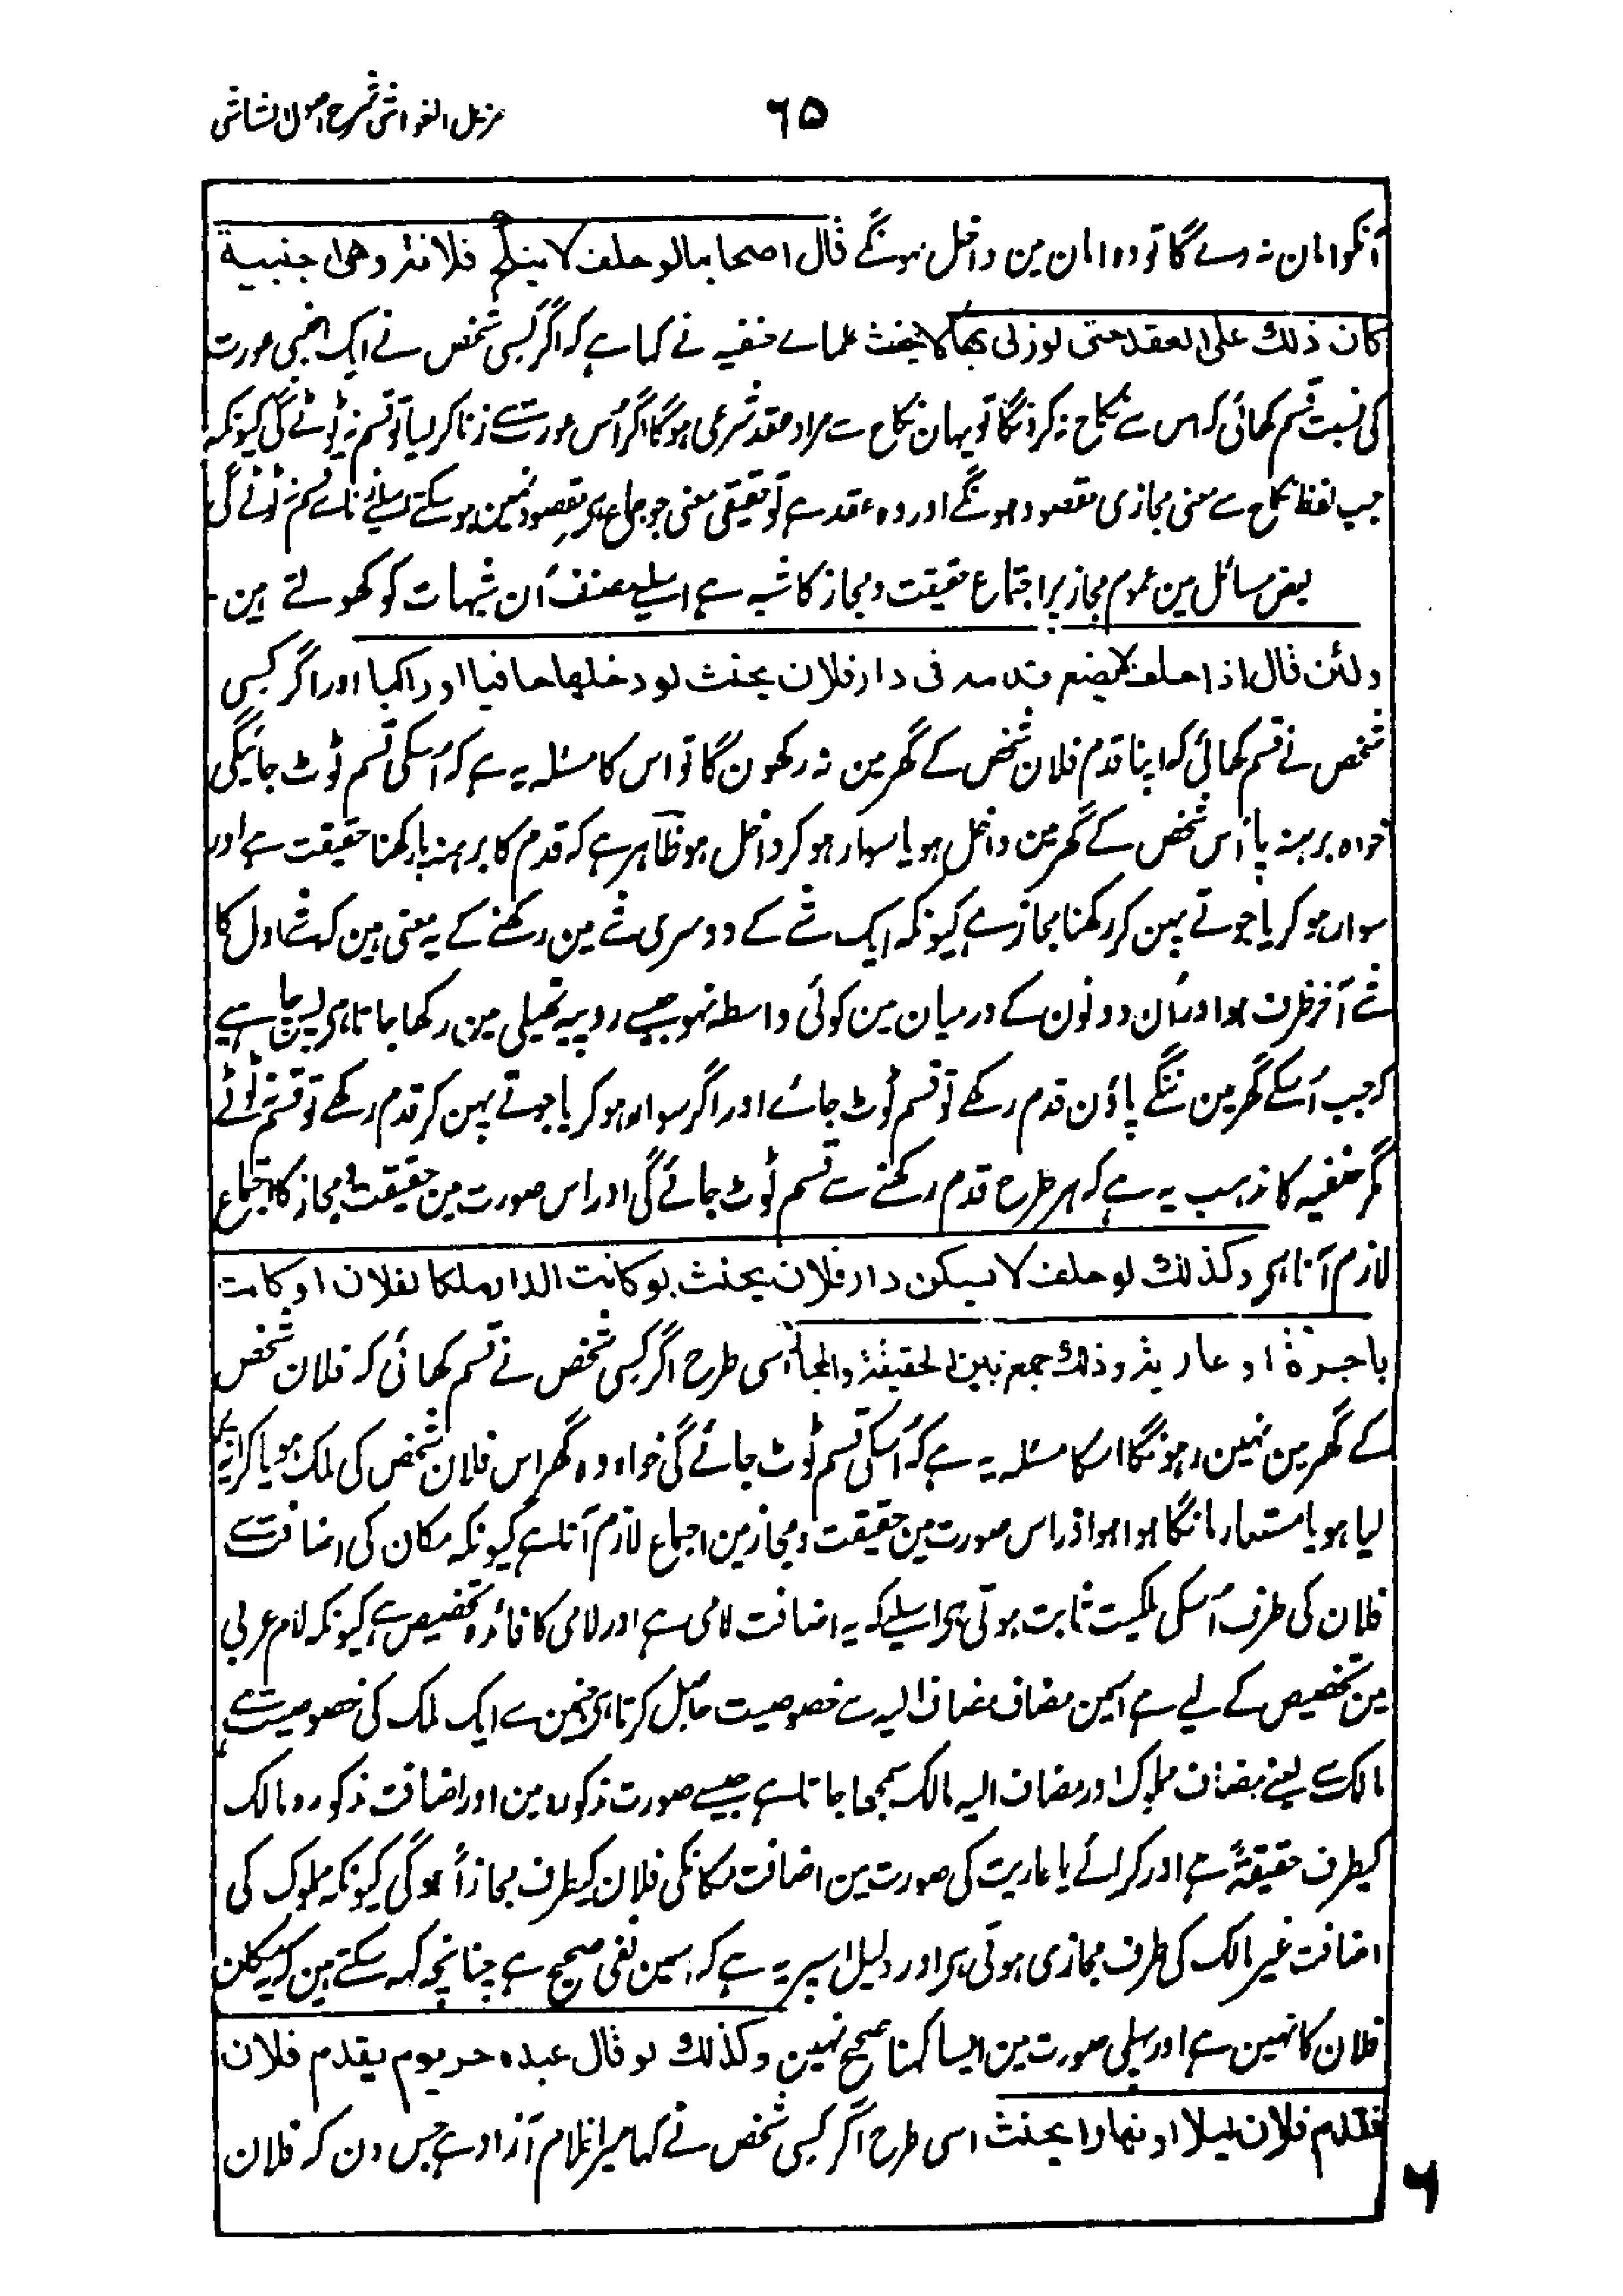 مزیل الغواشی شرح اصول الشاشی
٦٥
اُنکو امان نہ دے گا تو وہ امان مین داخل نہونگے قال اصحابنا لو حلف لا ینکح فلانة وھی اجنبیة
کان ذلك علی العقد حتی لو زنی بھا لا یحنث علماے حنفیہ نے کہا ہے کہ اگر کسی شخص نے ایک اجنبی عورت
کی نسبت قسم کھائی کہ اس سے نکاح نہ کرونگا تو یہان نکاح سے مراد عقد شرعی ہوگا اگر اُس عورت سے زنا کر لیا تو قسم نہ ٹوٹے گی کیونکہ
جب لفظ نکاح سے معنی مجازی مقصود ہونگے اور وہ عقد ہے تو حقیقی معنی جو جماع ہی مقصود نہین ہو سکتے اسلیے زنا سے قسم نہ ٹوٹے گی
بعض مسائل مین عموم مجاز پر اجتماع حقیقت و مجاز کا شبہ ہے اسلیے مصنف اُن شبہات کو کھولتے ہین -
ولئن قال اذا حلف لا یضع قدمہ فی دار فلان یحنث لو دخلھا حافیا او راکبا اور اگر کسی
شخص نے قسم کھائی کہ اپنا قدم فلان شخص کے گھر مین نہ رکھون گا تو اس کا مسئلہ یہ ہے کہ اُسکی قسم ٹوٹ جائیگی
خواہ برہنہ پا اُس شخص کے گھر مین داخل ہو یا سوار ہو کر داخل ہو ظاہر ہے کہ قدم کا برہنہ پا رکھنا حقیقت ہے اور
سوار ہو کر یا جوتے پہن کر رکھنا مجاز ہے کیونکہ ایک شے کے دوسری شے مین رکھنے کے یہ معنی ہین کہ شے اول کا
شے آخر ظرف ہو اور اُن دونون کے درمیان مین کوئی واسطہ نہو جیسے روپیہ تھیلی مین رکھا جاتا ہی پس چاہیے
کہ جب اُسکے گھر مین ننگے پاؤن قدم رکھے تو قسم ٹوٹ جائے اور اگر سوار ہو کر یا جوتے پہن کر قدم رکھے تو قسم نہ ٹوٹے
مگر حنفیہ کا مذہب یہ ہے کہ ہر طرح قدم رکھنے سے قسم ٹوٹ جائے گی اور اس صورت مین حقیقت و مجاز کا اجتماع
لازم آتا ہی وکذلك لو حلف لا یسکن دار فلان یحنث لو کانت الدار ملکا لفلان او کانت
باجرة او عاریة وذلك جمع بین الحقیقة والمجاز اسی طرح اگر کسی شخص نے قسم کھائی کہ فلان شخص
کے گھر مین نہین رہونگا اسکا مسئلہ یہ ہے کہ اُسکی قسم ٹوٹ جائے گی خواہ وہ گھر اس فلان شخص کی ملک ہو یا کرایہ پر
لیا ہو یا مستعار مانگا ہوا ہو اور اس صورت مین حقیقت و مجاز مین اجماع لازم آتا ہے کیونکہ مکان کی اضافت سے
فلان کی طرف اُسکی ملکیت ثابت ہوتی ہی اسلیے کہ یہ اضافت لامی ہے اور لامی کا فائدہ تخصیص ہے کیونکہ لام عربی
مین تخصیص کے لیے ہے اسمین مضاف مضاف الیہ سے خصوصیت حاصل کرتا ہی جنمین سے ایک ملک کی خصوصیت ہے
مالک سے یعنے مضاف مملوک اور مضاف الیہ مالک سمجھا جاتا ہے جیسے صورت مذکورہ مین اور اضافت مذکورہ مالک
کیطرف حقیقةً ہے اور کرائے یا عاریت کی صورت مین اضافت مکانکی فلان کیطرف مجازاً ہوگی کیونکہ مملوک کی
اضافت غیر مالک کی طرف مجازی ہوتی ہی اور دلیل اسپر یہ ہے کہ اسمین نفی صحیح ہے چنانچہ کہہ سکتے ہین کہ یہ مکان
فلان کا نہین ہے اور پہلی صورت مین ایسا کہنا صحیح نہین وکذلك لو قال عبدہ حر یوم یقدم فلان
فقدم فلان لیلا او نھارا یحنث اسی طرح اگر کسی شخص نے کہا میرا غلام آزاد ہے جس دن کہ فلان